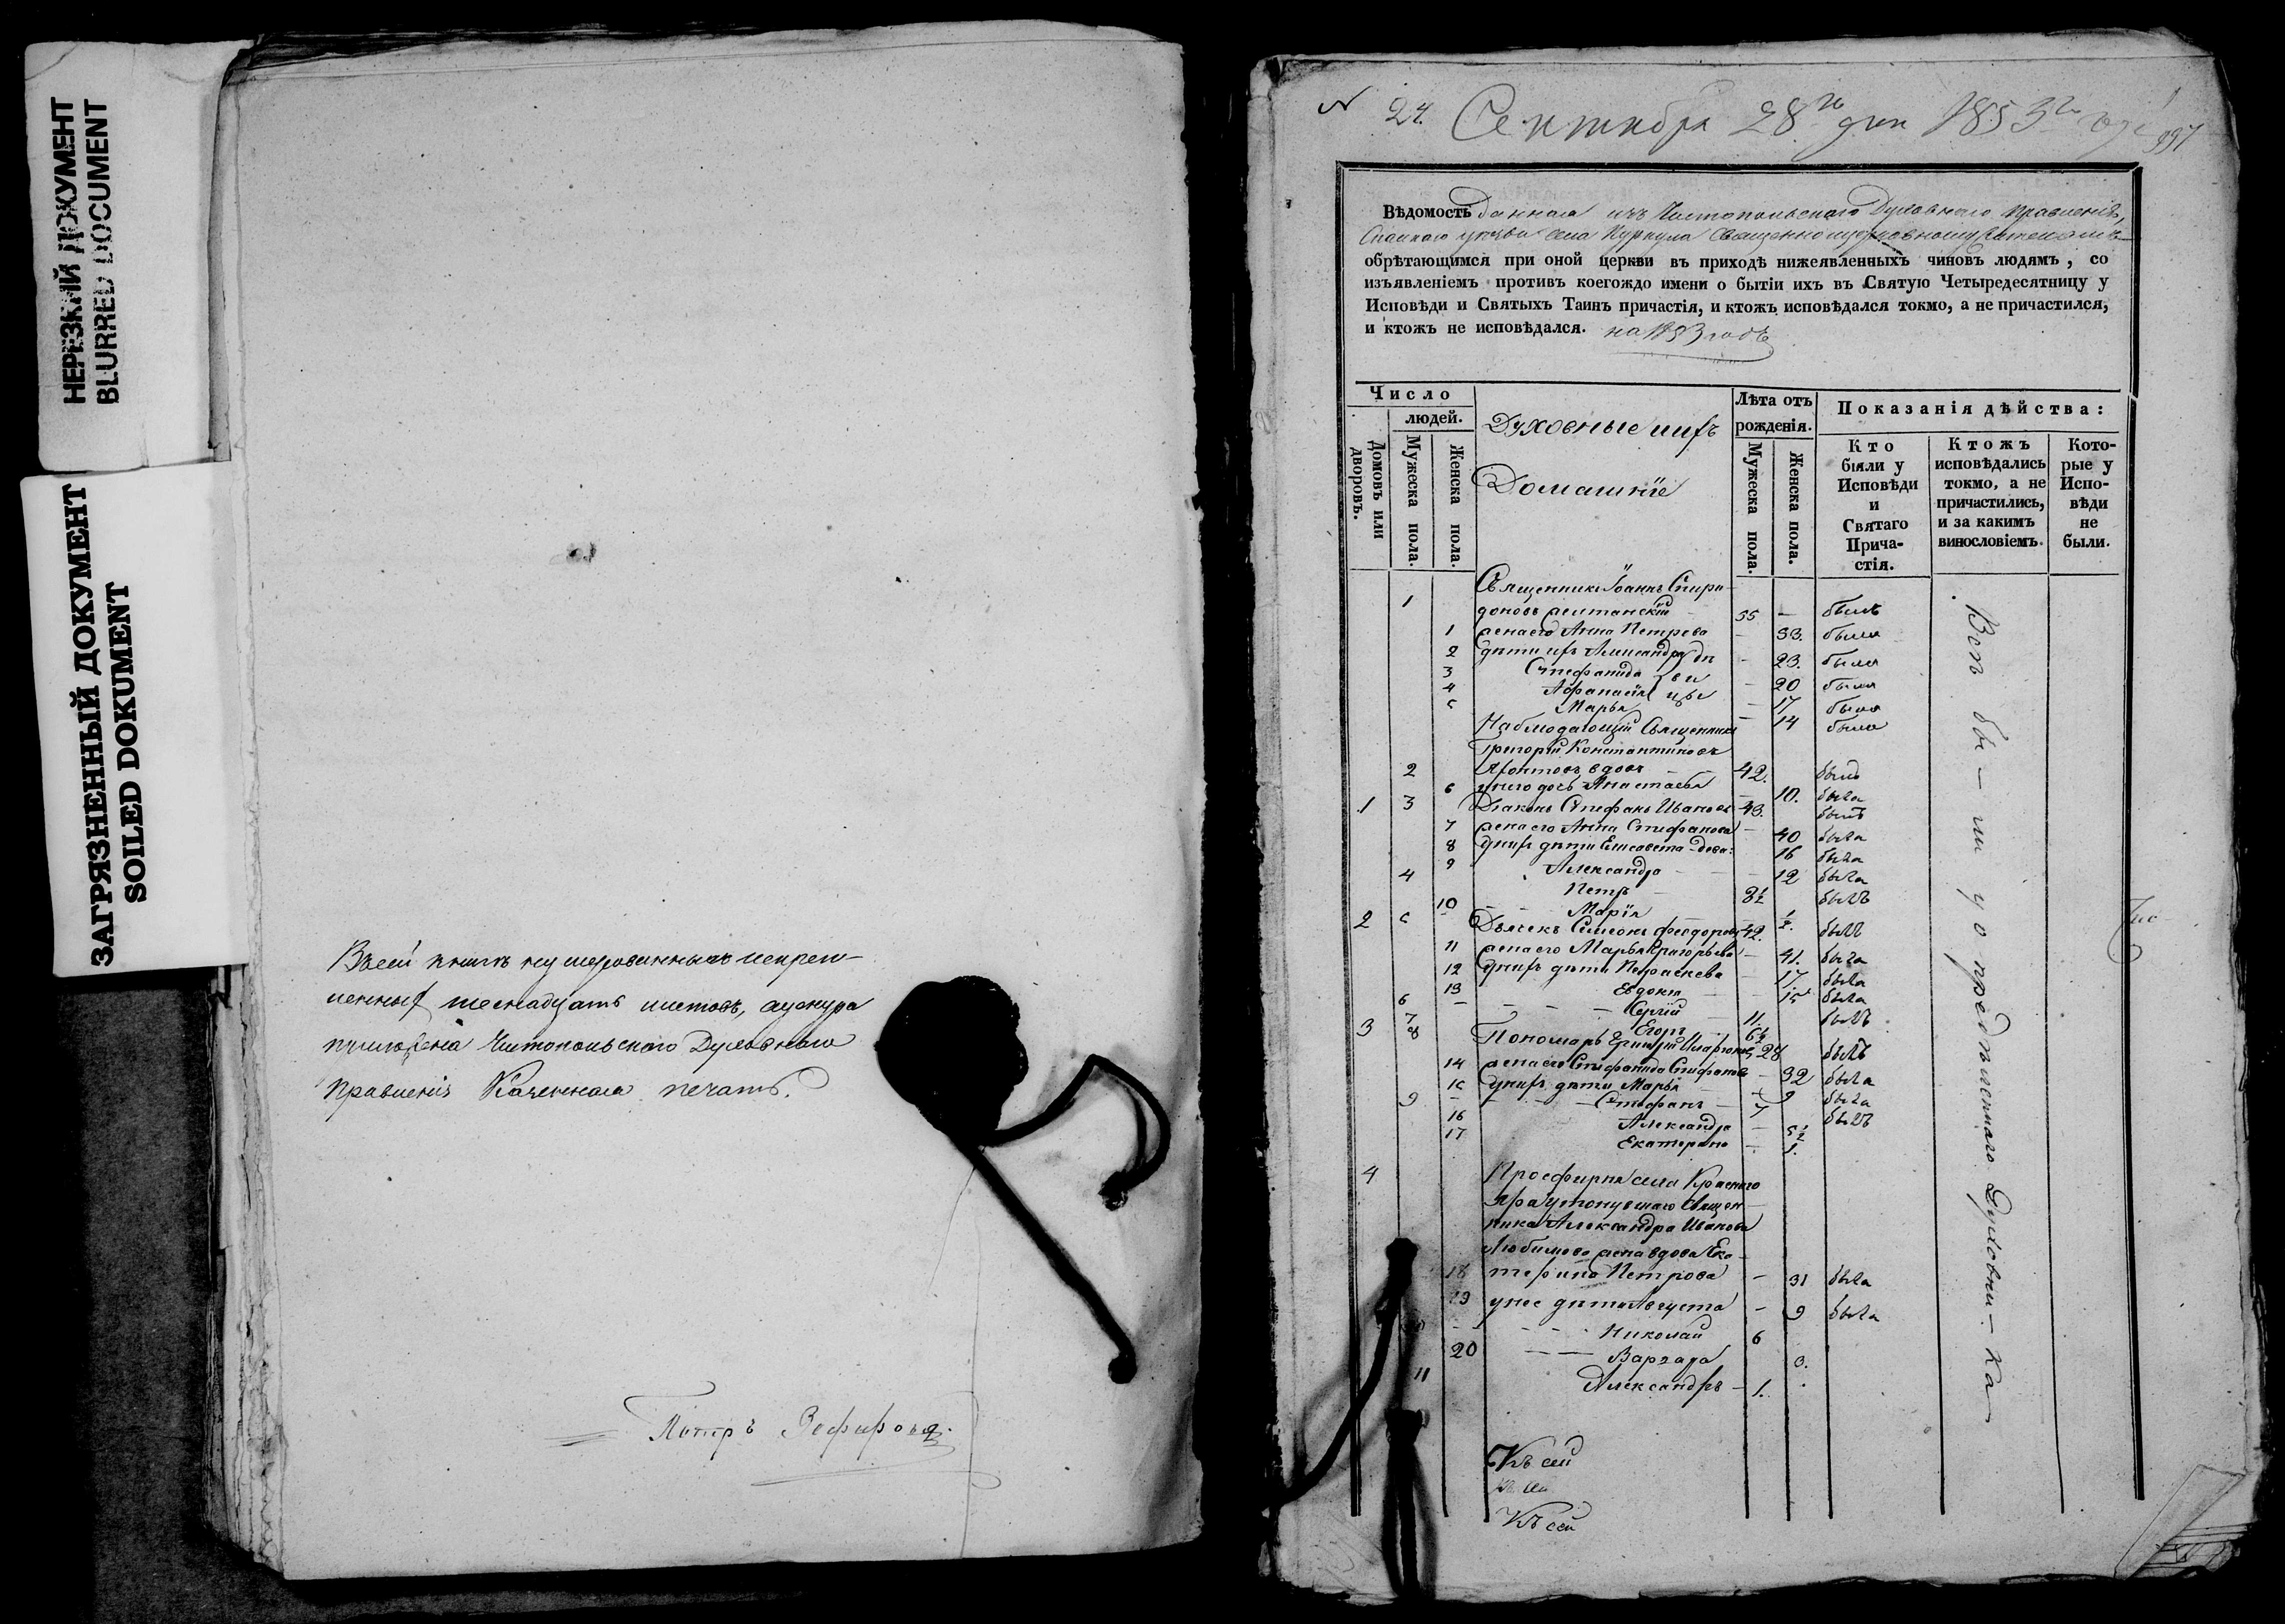 НЕРЕЗКИЙ ДОКУМЕНТ
BLURRED DOCUMENT
ЗАГРЯЗНЕННЫЙ ДОКУМЕНТ
SOILED DOKUMENT
Въ сей книгѣ нумерованныхъ
шеснадцать листовъ, а шнура
Чистопольскаго Духовнаго
Правленія Казенная печать.
Петръ Зефировъ.
№ 24. Сентября 28го дня 1853го года
Вѣдомость данная изъ Чистопольскаго Духовнаго Правленія,
Спаскаго уѣзда села Куркула Священноцерковнослужителямъ
обрѣтающимся при оной церкви въ приходѣ нижеявленныхъ чиновъ людямъ, со
изъявленіемъ противъ коегождо имени о бытіи ихъ въ Святую Четыредесятницу у
Исповѣди и Святыхъ Таинъ причастія, и ктожъ исповѣдался токмо, а не причастился,
и ктожъ не исповѣдался. на 1853 годъ
Число
людей.
Домовъ или дворовъ.
Мужеска пола.
Женска пола.
Духовные ихъ
Домашніе
Лѣта отъ рожденія.
Мужеска пола.
Женска пола.
Показанія дѣйства:
Кто были у Исповѣди и Святаго Причастія.
Ктожъ исповѣдались токмо, а не причастились, и за какимъ винословіемъ.
Которые у Исповѣди не были.
Священникъ Іоаннъ Спири-
1 доновъ 55 — былъ
1 жена его Анна Петрова — 53. была
2 дѣти ихъ Александра — 23. была
3 Стефанида — 20 была
4 — 17 была
5 Марья — 14 была
Наблюдающій Священникъ
Григорій Константиновъ
2 вдовъ 42. былъ
6 у него дочь Анастасья — 10. была
1 3 Діаконъ Стефанъ Ивановъ 43. былъ
7 жена его Анна Стефанова — 40 была
8 у нихъ дѣти Елисавета 16 была
9 Александра — 12 была
4 Петръ 8½ былъ
10 Марія ½
2 5 Дьячекъ Симеонъ Феодоровъ 42. былъ
11 жена его Марья Григорьева — 41. была
12 у нихъ дѣти Параскева 17 была
13 Евдокія 15 была
6 Сергій 11. былъ
7 Егоръ 6½
3 8 Пономарь 28 былъ
14 жена его Стефанида Стефанова — 32 была
15 у нихъ дѣти Марья 9 была
9 Стефанъ 7 былъ
16 Александра — 5½
17 Екатерина — 1.
4 Просфирня села Краснаго
Яра утонувшаго Священ-
ника Александра Иванова
Любимова жена вдова Ека-
18 терина Петрова — 31 была
19 у нее дѣти Августа — 9 была
10 Николай 6
20 Варвара 3.
11 Александръ — 1.
Къ сей
Къ сей
Къ сей